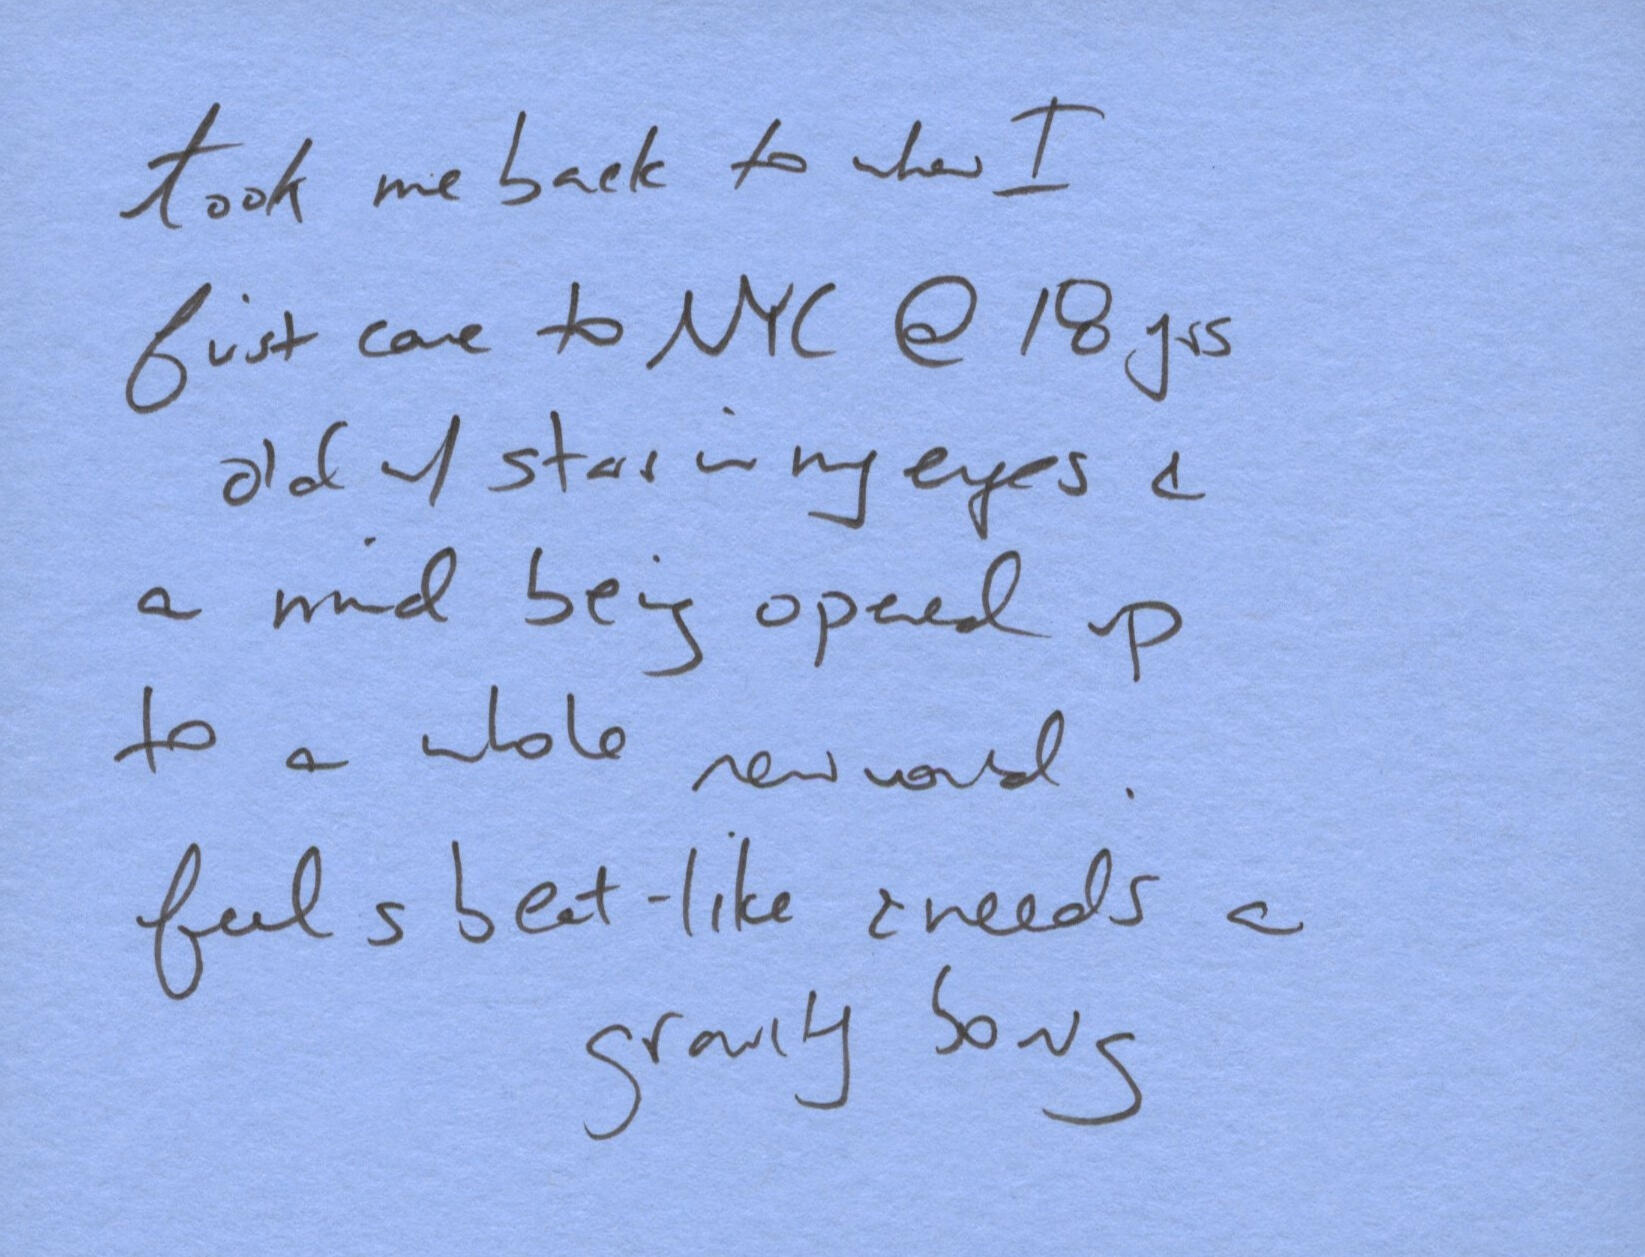 took me back to when I
first came to NYC @ 18 yrs
old w/ stars in my eyes &
a mind being opened up
to a whole new world.
feels beat-like & needs a
gravity bong